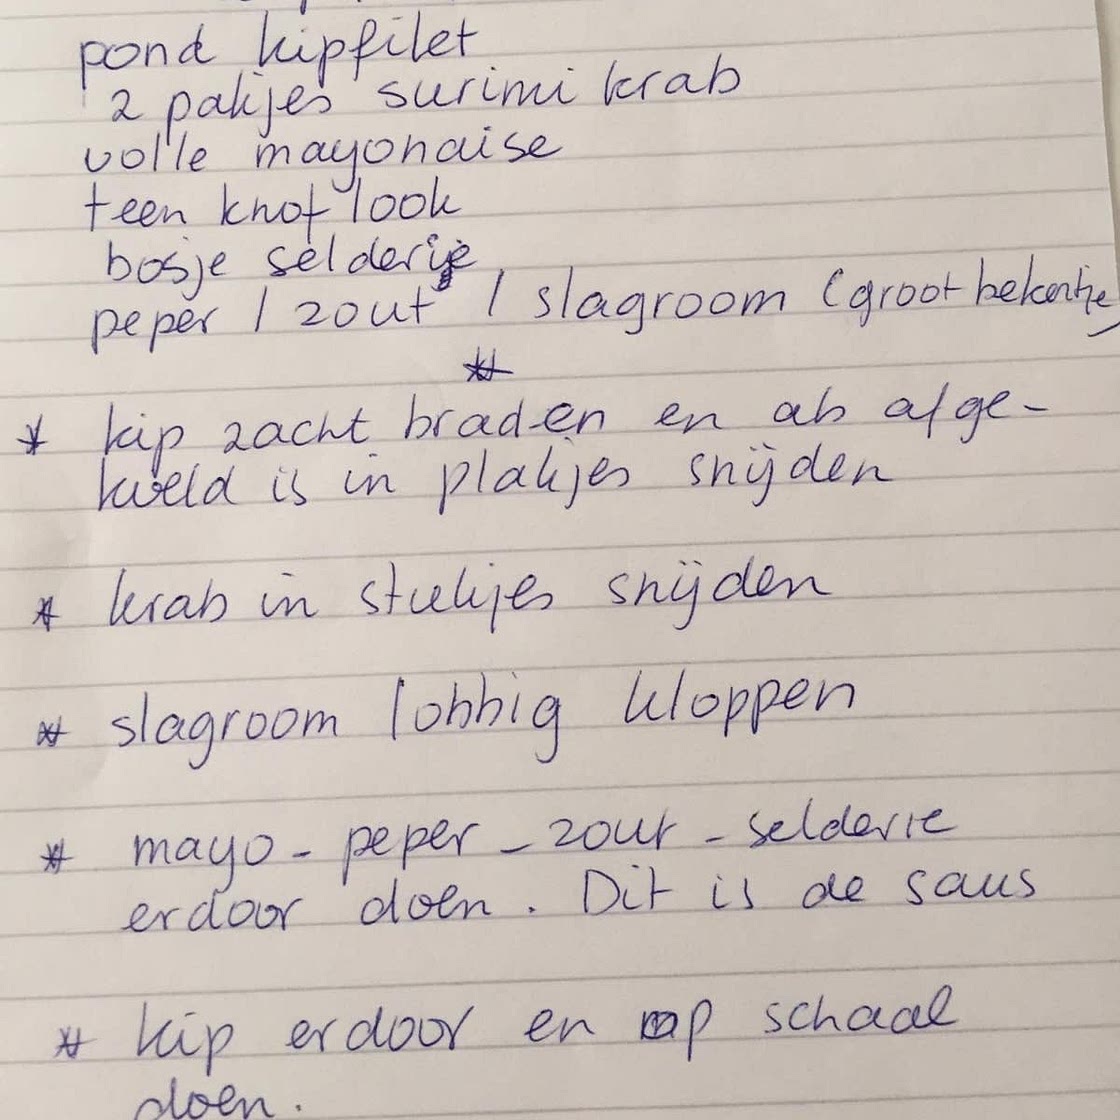 pond kipfilet
2 pakjes surimi krab
volle mayonaise
teen knoflook
bosje selderije
peper / zout / slagroom (groot bekertje)
* kip zacht braden en als afge-
koeld is in plakjes snijden
* krab in stukjes snijden
* slagroom lobbig kloppen
* mayo - peper - zout - selderie
erdoor doen. Dit is de saus
* kip erdoor en op schaal
doen.